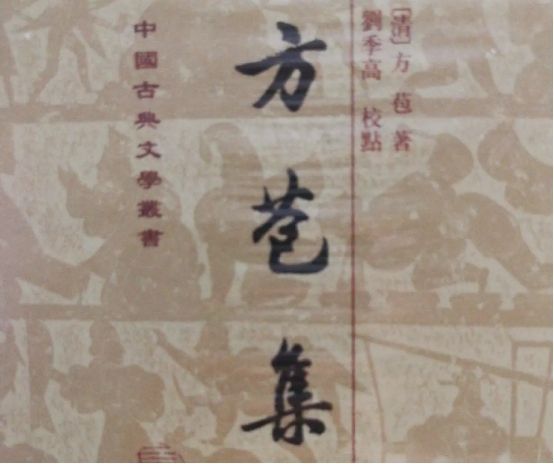 [清]方苞著
劉季高 校點
方苞集
中國古典文學叢書